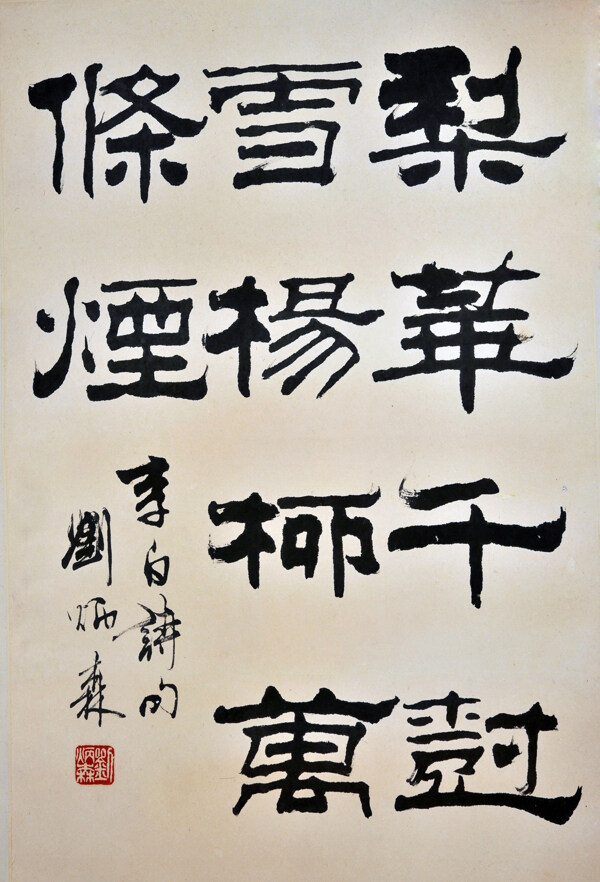 梨華千樹
雪楊柳萬
條煙
李白詩句
劉炳森
劉炳森